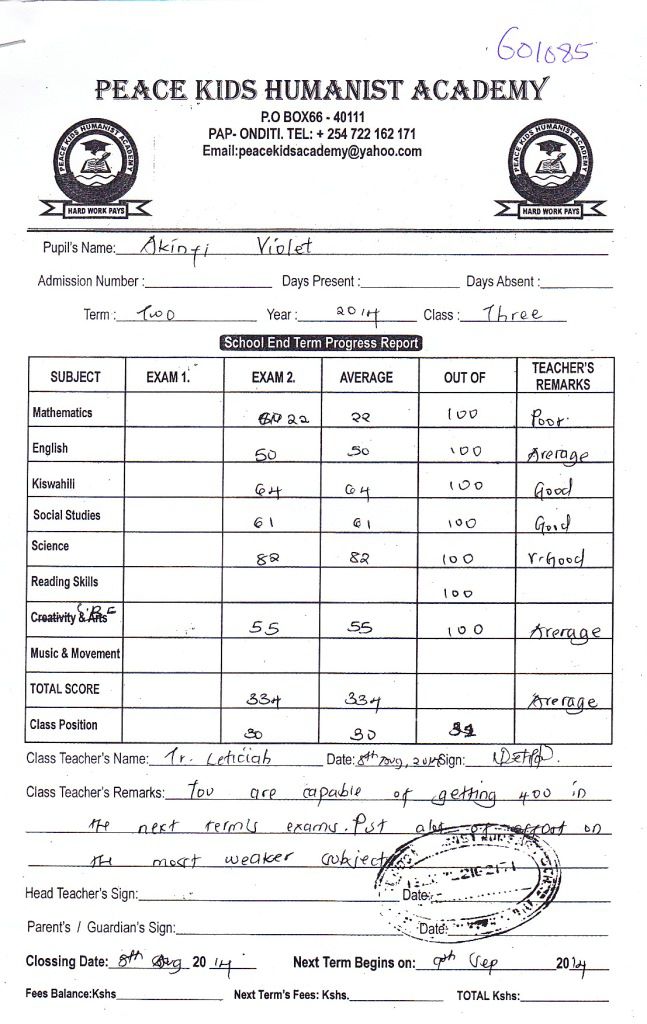 601085
PEACE KIDS HUMANIST ACADEMY
P.O BOX66 - 40111
PAP- ONDITI. TEL: + 254 722 162 171
Email:peacekidsacademy@yahoo.com
PEACE KIDS HUMANIST ACADEMY PEACE KIDS HUMANIST ACADEMY
HARD WORK PAYS HARD WORK PAYS
Pupil's Name: Akinyi Violet
Admission Number : Days Present : Days Absent :
Term : Two Year : 2014 Class : Three
School End Term Progress Report
SUBJECT EXAM 1. EXAM 2. AVERAGE OUT OF TEACHER'S REMARKS
Mathematics 22 22 100 Poor.
English 50 50 100 Average
Kiswahili 64 64 100 Good
Social Studies 61 61 100 Good
Science 82 82 100 V.Good
Reading Skills 100
Creativity & Arts 55 55 100 Average
Music & Movement
TOTAL SCORE 334 334 Average
Class Position 30 30
Class Teacher's Name: Tr. Leticiah Date: 8th Aug, 2014 Sign:
Class Teacher's Remarks: You are capable of getting 400 in
the next term's exams. Put alot of effort on
the most weaker subject
Head Teacher's Sign: Date:
Parent's / Guardian's Sign: Date:
Clossing Date: 8th Aug 2014 Next Term Begins on: Sep 2014
Fees Balance:Kshs Next Term's Fees: Kshs. TOTAL Kshs: